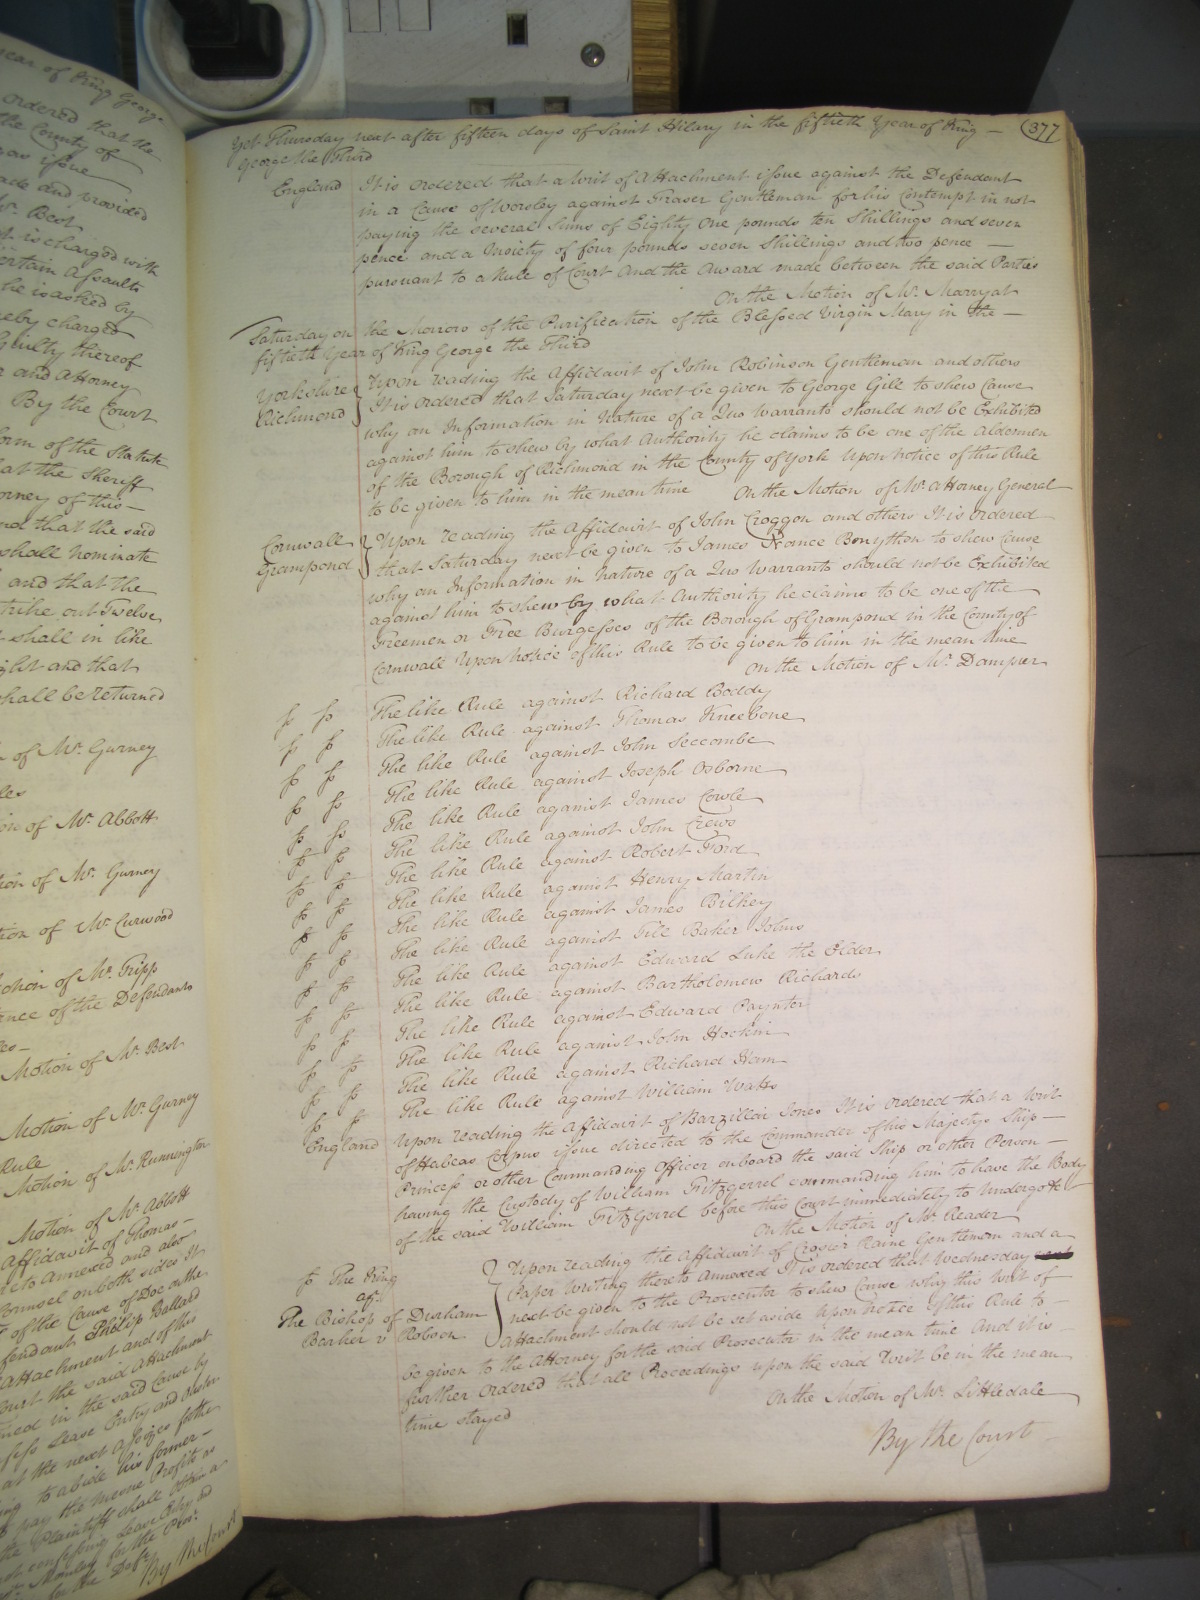 year of King George
ordered that the
the County of
was issue
made and provided
Mr. Best
is charged with
certain assaults
he is asked by
hereby charged
Guilty thereof
and Attorney
By the Court
form of the Statute
that the Sheriff
Attorney of this
and that the said
shall nominate
and that the
strike out Twelve
shall in like
right and that
shall be returned
of Mr. Gurney
of Mr. Abbott
of Mr. Gurney
of Mr. Curwood
Motion of Mr. Tripp
of the Defendants
Motion of Mr. Best
Motion of Mr. Gurney
Rule
Motion of Mr. Runnington
Motion of Mr. Abbott
Affidavit of Thomas
annexed and also
Counsel on both sides It
of the Cause of Doe on the
Defendant Philip Ballard
Attachment and of this
Court the said Attachment
in the said Cause by
confess Lease Entry and Ouster
at the next Assizes for the
to abide his former
to pay the Mesne Profits as
the Plaintiff shall obtain a
not confessing Lease Entry and
Monday for the
for the Deft.
By the Court
377
Yet Thursday next after fifteen days of Saint Hilary in the fiftieth Year of King
George the Third
England It is ordered that a Writ of Attachment issue against the Defendant
in a Cause of Worsley against Fraser Gentleman for his Contempt in not
paying the several Sums of Eighty One pounds ten Shillings and seven
pence and a Moiety of four pounds seven Shillings and two pence
pursuant to a Rule of Court and the Award made between the said Parties
On the Motion of Mr. Marryat
Saturday on the Morrow of the Purification of the Blessed Virgin Mary in the
fiftieth Year of King George the Third
Yorkshire Upon reading the Affidavit of John Robinson Gentleman and others
Richmond It is ordered that Saturday next be given to George Gill to shew Cause
why an Information in Nature of a Quo Warranto should not be Exhibited
against him to shew by what Authority he claims to be one of the Aldermen
of the Borough of Richmond in the County of York Upon notice of this Rule
to be given to him in the mean time On the Motion of Mr. Attorney General
Cornwall Upon reading the Affidavit of John Croggon and others It is ordered
Grampond that Saturday next be given to James Prance Bonython to shew Cause
why an Information in Nature of a Quo Warranto should not be Exhibited
against him to shew by what Authority he claims to be one of the
Freemen or Free Burgesses of the Borough of Grampond in the County of
Cornwall Upon Notice of this Rule to be given to him in the mean time
On the Motion of Mr. Dampier
The like Rule against Richard Boddy
The like Rule against Thomas Kneebone
The like Rule against John Seccombe
The like Rule against Joseph Osborne
The like Rule against James Cowle
The like Rule against John Crews
The like Rule against Robert Ford
The like Rule against Henry Martin
The like Rule against James Bilkey
The like Rule against Gill Baker Johns
The like Rule against Edward Luke the Elder
The like Rule against Bartholomew Richards
The like Rule against Edward Paynter
The like Rule against John Hockin
The like Rule against Richard Ham
The like Rule against William Watts
England Upon reading the Affidavit of Barzillai Jones It is ordered that a Writ
of Habeas Corpus issue directed to the Commander of his Majestys Ship
Princess or other Commanding Officer on board the said Ship or other Person
having the Custody of William Fitzgerrel commanding him to have the Body
of the said William Fitzgerrel before this Court immediately to undergo &c
On the Motion of Mr. Reader
The King Upon reading the Affidavit of Crosier Raine Gentleman and a
agt. Paper Writing thereto annexed It is ordered that Wednesday
The Bishop of Durham next be given to the Prosecutor to shew Cause why this Writ of
Barker v Robson Attachment should not be set aside Upon notice of this Rule to
be given to the Attorney for the said Prosecutor in the mean time And it is
further Ordered that all Proceedings upon the said Writ be in the mean
time stayed On the Motion of Mr. Littledale
By the Court